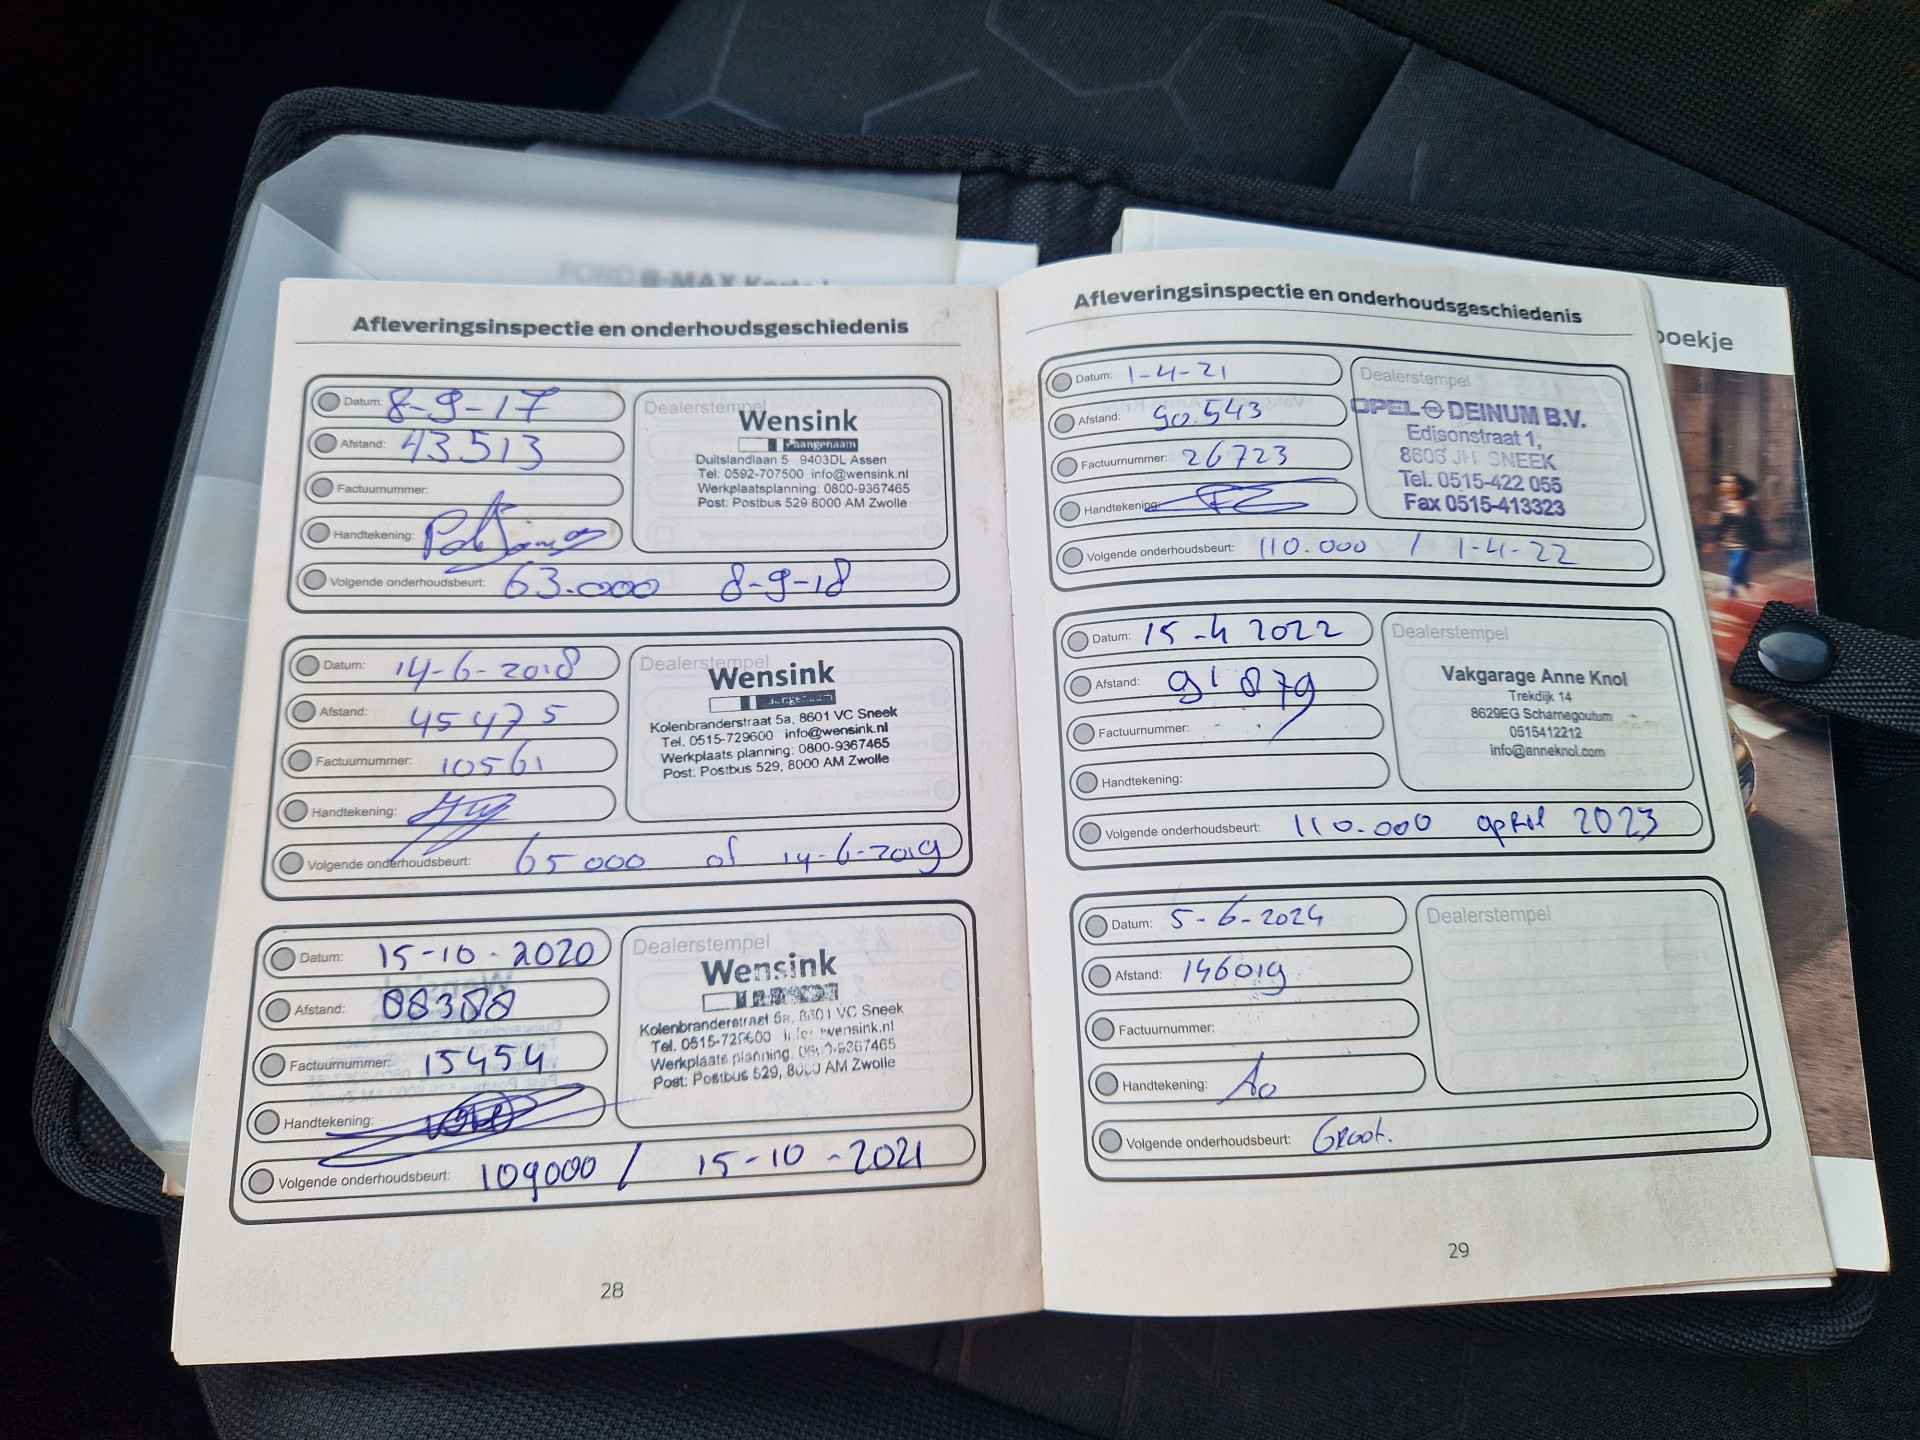 B-MAX
Afleveringsinspectie en onderhoudsgeschiedenis
Datum: 8-9-17
Afstand: 43.513
Factuurnummer:
Handtekening:
Volgende onderhoudsbeurt: 63.000 8-9-18
Dealerstempel
Wensink
aangenaam
Duitslandlaan 5 9403DL Assen
Tel: 0592-707500 info@wensink.nl
Werkplaatsplanning: 0800-9367465
Post: Postbus 529 8000 AM Zwolle
Datum: 14-6-2018
Afstand: 45475
Factuurnummer: 10561
Handtekening:
Volgende onderhoudsbeurt: 65000 of 14-6-2019
Dealerstempel
Wensink
Kolenbranderstraat 5a, 8601 VC Sneek
Tel. 0515-729600 info@wensink.nl
Werkplaats planning: 0800-9367465
Post: Postbus 529, 8000 AM Zwolle
Datum: 15-10-2020
Afstand: 88388
Factuurnummer: 15454
Handtekening:
Volgende onderhoudsbeurt: 109000 / 15-10-2021
Dealerstempel
Wensink
Kolenbranderstraat 5a, 8601 VC Sneek
Tel. 0515-729600 info@wensink.nl
Werkplaats planning: 0800-9367465
Post: Postbus 529, 8000 AM Zwolle
28
Afleveringsinspectie en onderhoudsgeschiedenis
Datum: 1-4-21
Afstand: 90.543
Factuurnummer: 26723
Handtekening:
Volgende onderhoudsbeurt: 110.000 / 1-4-22
Dealerstempel
OPEL DEINUM B.V.
Edisonstraat 1,
8606 JH SNEEK
Tel. 0515-422 055
Fax 0515-413323
Datum: 15-4 2022
Afstand: 91879
Factuurnummer:
Handtekening:
Volgende onderhoudsbeurt: 110.000 april 2023
Dealerstempel
Vakgarage Anne Knol
Trekdijk 14
8629EG Scharnegoutum
0515412212
info@anneknol.com
Datum: 5-6-2024
Afstand: 146019
Factuurnummer:
Handtekening:
Volgende onderhoudsbeurt: Groot.
Dealerstempel
29
boekje